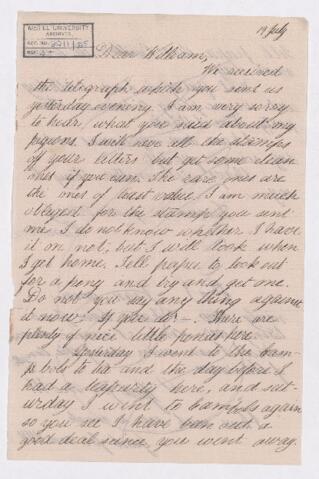 McGILL UNIVERSITY
ARCHIVES
ACC. NO.
REF.
19 July
Dear William,
We received
the telegraph which you sent us
yesterday evening. I am very sorry
to hear, what you say about my
pigeons. I wish have all the stamps
of your letters but get some clean
ones if you can. The rare ones are
the ones of least value. I am much
obliged for the stamp you sent
me. I do not know whether I have
it or not, but I will look when
I get home. Tell papa to look out
for a pony and try and get one.
Do not you say any thing against
it now. If you do — There are
plenty of nice little ponies here.
Yesterday I went to the Cam-
p bels to tea and the day before I
had a teaparty here, and sat-
urday I went to Cambels again
so you see I have ban out a
good deal sence you went away.